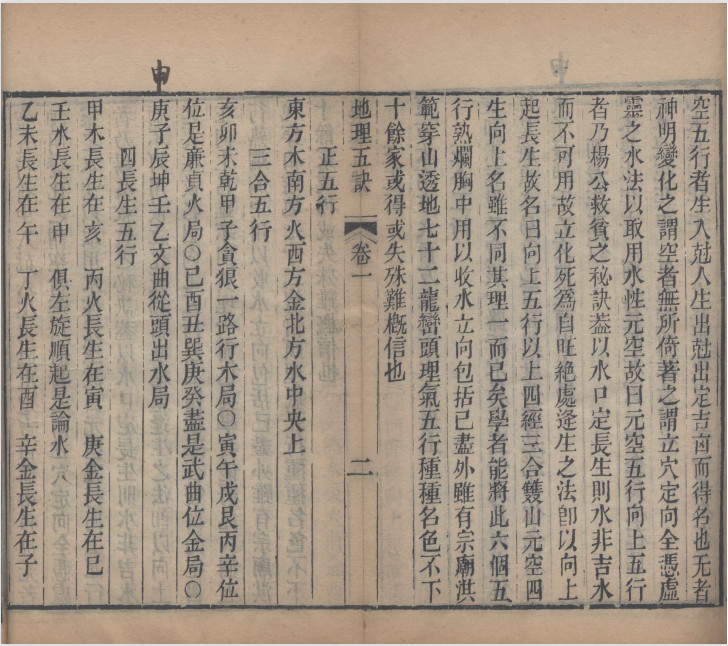 申
空五行者生入尅入生出尅出定吉凶而得名也无者
神明變化之謂空者無所倚著之謂立穴定向全憑虛
靈之水法以取用水性元空故曰元空五行向上五行
者乃楊公救貧之秘訣葢以水口定長生則水非吉水
而不可用故立化死爲自旺絶處逢生之法卽以向上
起長生故名曰向上五行以上四經三合雙山元空四
生向上名雖不同其理一而已矣學者能將此六個五
行熟爛胸中用以收水立向包括已盡外雖有宗廟洪
範穿山透地七十二龍巒頭理氣五行種種名色不下
十餘家或得或失殊難概信也
地理五訣 卷一 二
正五行
東方木南方火西方金北方水中央土
三合五行
亥卯未乾甲丁貪狼一路行木局〇寅午戌艮丙辛位
位是廉貞火局〇巳酉丑巽庚癸盡是武曲位金局〇
庚子辰坤壬乙文曲從頭出水局
四長生五行
甲木長生在亥 丙火長生在寅 庚金長生在巳
壬水長生在申 俱左旋順起是論水
乙未長生在午 丁火長生在酉 辛金長生在子
申